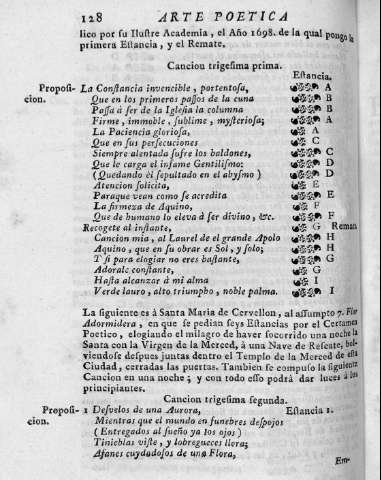 128 ARTE POETICA
lico por su Ilustre Academia, el Año 1698. de la qual pongo la
primera Estancia, y el Remate.
Cancion trigesima prima.
Estancia.
Proposicion. La Constancia invencible, portentosa, A
Que en los primeros passos de la cuna B
Passa á ser de la Iglesia la columna B
Firme, immoble, sublime, mysteriosa; A
La Paciencia gloriosa, A
Que en sus persecuciones C
Siempre alentada sufre los baldones, C
Que le carga el infame Gentilismo; D
(Quedando él sepultado en el abysmo) D
Atencion solicita, E
Paraque vean como se acredita E
La firmeza de Aquino, F
Que de humano lo eleva à ser divino, &c. F
Recogete al instante, G Remate
Cancion mia, al Laurel de el grande Apolo H
Aquino, que en su obrar es Sol, y solo; H
T si para elogiar no eres bastante, G
Adorale constante, G
Hasta alcanzar à mi alma I
Verde lauro, alto triumpho, noble palma. I
La siguiente es à Santa Maria de Cervellon, al assumpto 7. Flor
Adormidera, en que se pedian seys Estancias por el Certamen
Poetico, elogiando el milagro de haver socorrido una noche la
Santa con la Virgen de la Merced, à una Nave de Rescate, bol-
viendose despues juntas dentro el Templo de la Merced de esta
Ciudad, cerradas las puertas. Tambien se compuso la siguiente
Cancion en una noche; y con todo esso podrá dar luces á los
principiantes.
Cancion trigesima segunda.
Proposi- 1 Desvelos de una Aurora, Estancia 1.
cion. Mientras que el mundo en funebres despojos
(Entregados al sueño ya los ojos)
Tinieblas viste, y lobregueces llora;
Afanes cuydadosos de una Flora,
Em-